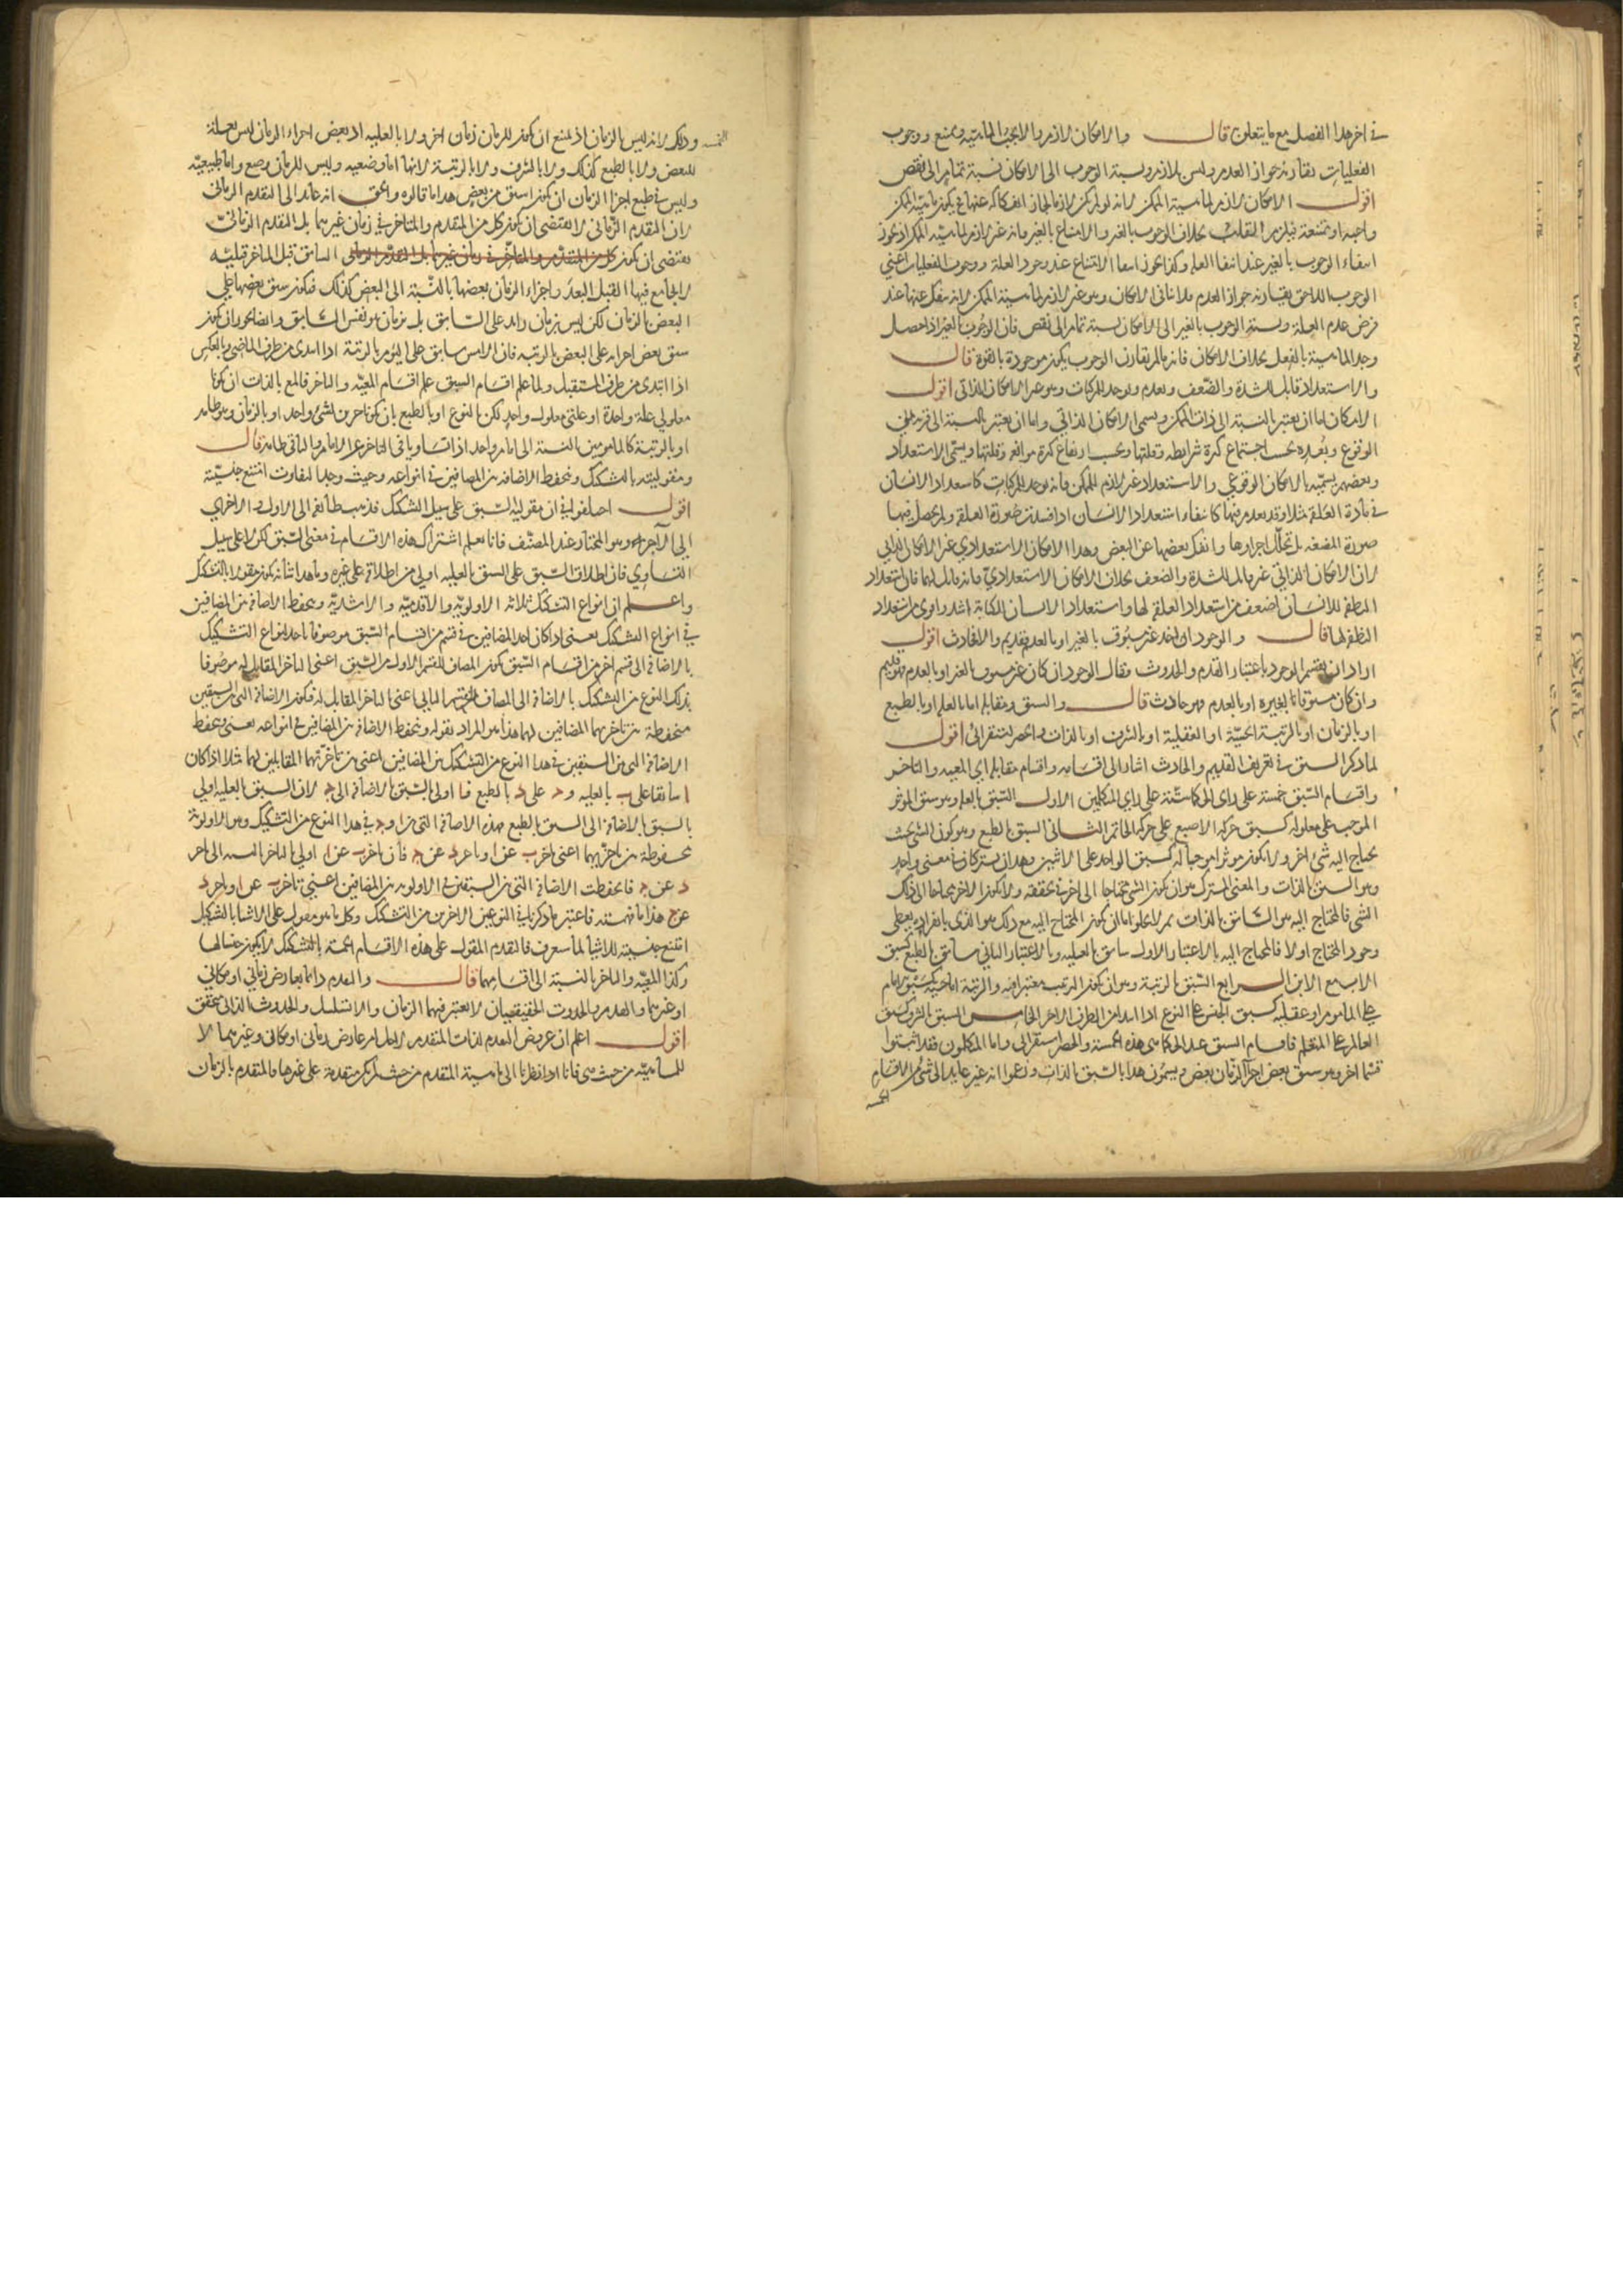 في اخر هذا الفصل مع ما يتعلق به قال والامكان لازم والا لانقلب الماهية ويمتنع ووجوب
الفعليات يقارنه جواز العدم وليس بلازم ونسبة الوجوب الى الامكان نسبة تمام الى نقص
اقول الامكان لازم لماهية الممكن لانه لو لم يكن لازما لجاز انفكاكه عنها فيكون ماهية الممكن
واجبة او ممتنعة فيلزم انقلاب بخلاف الوجوب بالغير والامتناع بالغير فانه غير لازم لماهية الممكن اذ يجوز
انتفاء الوجوب بالغير عند انتفاء العلة وكذا يجوز انتفاء الامتناع عند وجود العلة ووجوب الفعليات اعني
الوجوب اللاحق يقارنه جواز العدم فلا ينافي الامكان وهو غير لازم لماهية الممكن لانه ينفك عنها عند
فرض عدم العلة ونسبة الوجوب بالغير الى الامكان نسبة تمام الى نقص فان الوجوب بالغير اذا حصل
وجد الماهية بالفعل بخلاف الامكان فانه ما لم يقارن الوجوب يكون موجودة بالقوة قال
والاستعداد قابل للشدة والضعف ويعدم ويوجد للمركبات وهو غير الامكان الذاتي اقول
الامكان اما ان يعتبر بالنسبة الى ذات الممكن ويسمى الامكان الذاتي واما ان يعتبر بالنسبة الى قربه من
الوقوع وبعده بحسب اجتماع كثرة شرايطه وقلتها وبحسب ارتفاع كثرة موانعه وقلتها ويسمى الاستعداد
وبعضهم يسميه بالامكان الوقوعي والاستعداد غير لازم للممكن فانه يوجد للمركبات كاستعداد الانسان
في مادة العلقة مثلا وقد يعدم فيها كانتفاء استعداد الانسان اذا فسدت صورة العلقة ولم يحصل فيها
صورة المضغة بل تحلل اجزاؤها وانفك بعضها عن البعض وهذا الامكان الاستعدادي غير الامكان الذاتي
لان الامكان الذاتي غير قابل للشدة والضعف بخلاف الامكان الاستعدادي فانه قابل لهما فان استعداد
النطفة للانسان اضعف من استعداد العلقة لها واستعداد الانسان للكتابة اشد واقوى من استعداد
النطفة لها قال والوجود ان اخذ غير مسبوق بالغير او بالعدم فقديم والا فحادث اقول
اراد ان يقسم الوجود باعتبار القدم والحدوث فقال الوجود ان كان غير مسبوق بالغير او بالعدم فهو قديم
وان كان مسبوقا بغيره او بالعدم فهو حادث قال والسبق ومقابله اما بالعلية او بالطبع
او بالزمان او بالرتبة الحسية او العقلية او بالشرف او بالذات والحصر استقرائي اقول
لما ذكر السبق في تعريف القديم والحادث اشار الى اقسامه واقسام مقابله اي المعية والتاخر
واقسام السبق خمسة على راي الحكما ستة على راي المتكلمين الاول السبق بالعلية وهو سبق المؤثر
الموجب على معلوله كسبق حركة الاصبع على حركة الخاتم الثاني السبق بالطبع وهو كون الشي بحيث
يحتاج اليه شي اخر ولا يكون موثرا موجبا له كسبق الواحد على الاثنين وهذان يشتركان في معنى واحد
وهو السبق بالذات والمعنى المشترك هو ان يكون الشي محتاجا الى اخر في تحققه ولا يكون الاخر محتاجا الى ذلك
الشي فالمحتاج اليه هو السابق بالذات ثم لا يخلوا اما ان يكون المحتاج اليه مع ذلك هو الذي بانفراده يعطي
وجود المحتاج او لا فالمحتاج اليه بالاعتبار الاول سابق بالعلية وبالاعتبار الثاني سابق بالطبع كسبق
الاب مع الابن الرابع السبق بالرتبة وهو ان يكون الترتيب معتبرا فيه والرتبة اما حسية كسبق الامام
على الماموم او عقلية كسبق الجنس على النوع اذا ابتدا من الطرف الاخر الخامس السبق بالشرف كسبق
العالم على المتعلم فاقسام السبق عند الحكما هي هذه الخمسة والحصر استقرائي واما المتكلمون فقد اثبتوا
قسما اخر وهو سبق بعض اجزا الزمان بعض ويسمون هذا بالسبق بالذات وزعموا انه غير عايد الى شي من الاقسام
الخمسة
الخمسة وذلك لانه ليس بالزمان اذ يمتنع ان يكون للزمان زمان اخر ولا بالعلية اذ بعض اجزاء الزمان ليس بعلة
للبعض ولا بالطبع كذلك ولا بالشرف ولا بالرتبة لانها اما وضعية وليس للزمان وضع واما طبيعية
وليس في طبع اجزا الزمان ان يكون اسبق من بعض هذا ما قالوه والحق انه عائد الى التقدم الزماني
لان المتقدم الزماني لا يقتضي ان يكون كل من المتقدم والمتاخر في زمان غيرهما بل المتقدم الزماني
يقتضي ان يكون السابق قبل المتاخر قبلية
لا يجامع فيها القبل البعد واجزاء الزمان بعضها بالنسبة الى البعض كذلك فيكون سبق بعضها على
البعض بالزمان لكن ليس بزمان زائد على السابق بل بزمان هو نفس السابق وايضا يجوز ان يكون
سبق بعض اجزائه على البعض بالرتبة فان الامس سابق على اليوم بالرتبة اذا ابتدى من طرف الماضي وبالعكس
اذا ابتدى من طرف المستقبل ولما علم اقسام السبق علم اقسام المعية والتاخر فالمع بالذات ان يكونا
معلولي علة واحدة او علتي معلول واحد لكن بالنوع او بالطبع بان يكونا جزئين لشي واحد او بالزمان وهو ظاهر
او بالرتبة كالمامومين بالنسبة الى امام واحد اذا تساويا في التاخر عن الامام والباقي ظاهر قال
ومقوليته بالتشكيك وتنحفظ الاضافة بين المضافين في انواعه وحيث وجد التفاوت امتنع جنسيته
اقول اختلفوا في ان مقولية السبق على سبيل التشكيك فذهب طائفة الى الاول والاخرى
الى الاخر وهو المختار عند المصنف فانا نعلم اشتراك هذه الاقسام في معنى السبق لكن لا على سبيل
التساوي فان اطلاق السبق على السبق بالعلية اولى من اطلاقه على غيره وما هذا شانه يكون مقولا بالتشكيك
واعلم ان انواع التشكيك ثلاثة الاولوية والاقدمية والاشدية وتنحفظ الاضافة بين المضافين
في انواع التشكيك يعني اذا كان احد المضافين في قسم من اقسام السبق موصوفا باحد انواع التشكيك
بالاضافة الى قسم اخر من اقسام السبق يكون المضاف للقسم الاول من السبق اعني التاخر المقابل له موصوفا
بذلك النوع من التشكيك بالاضافة الى المضاف للقسم الثاني اعني التاخر المقابل له فيكون الاضافة التي بين السبقين
منحفظة بين تاخريهما المضافين لهما هذا هو المراد بقوله وتنحفظ الاضافة بين المضافين في انواعه يعني تنحفظ
الاضافة التي بين السبقين في هذا النوع من التشكيك بين المضافين اعني بين تاخريهما المقابلين لهما مثلا اذا كان
ا سابقا على ب بالعلية و ج على د بالطبع فا اولى بالسبق بالاضافة الى ج لان السبق بالعلية اولى
بالسبق بالاضافة الى السبق بالطبع فهذه الاضافة التي بين ا و ج في هذا النوع من التشكيك وهو الاولوية
محفوظة بين تاخريهما اعني تاخر ب عن ا وتاخر د عن ج فان تاخر ب عن ا اولى بالتاخر بالنسبة الى تاخر
د عن ج فانحفظت الاضافة التي بين السبقين في الاولوية بين المضافين اعني تاخر ب عن ا وتاخر د
عن ج هذا ما فهمته فاعتبر ما ذكرنا في النوعين الاخرين من التشكيك وكل ما هو مقول على الاشيا بالتشكيك
امتنع جنسيته للاشيا لما سنعرف فالتقدم المقول على هذه الاقسام الخمسة بالتشكيك لا يكون جنسا لها
وكذا المعية والتاخر بالنسبة الى اقسامهما قال والتقدم دائما بعارض زماني او مكاني
او غيرهما والقدم والحدوث الحقيقيان لا يعتبر فيهما الزمان والا تسلسل والحدوث الذاتي متحقق
اقول اعلم ان عروض التقدم لذات المتقدم انما لامر عارض زماني او مكاني وغيرهما لا
للماهية من حيث هي فانا اذا نظرنا الى ماهية المتقدم من حيث لم يكن متقدمة على غيرها فالمتقدم بالزمان